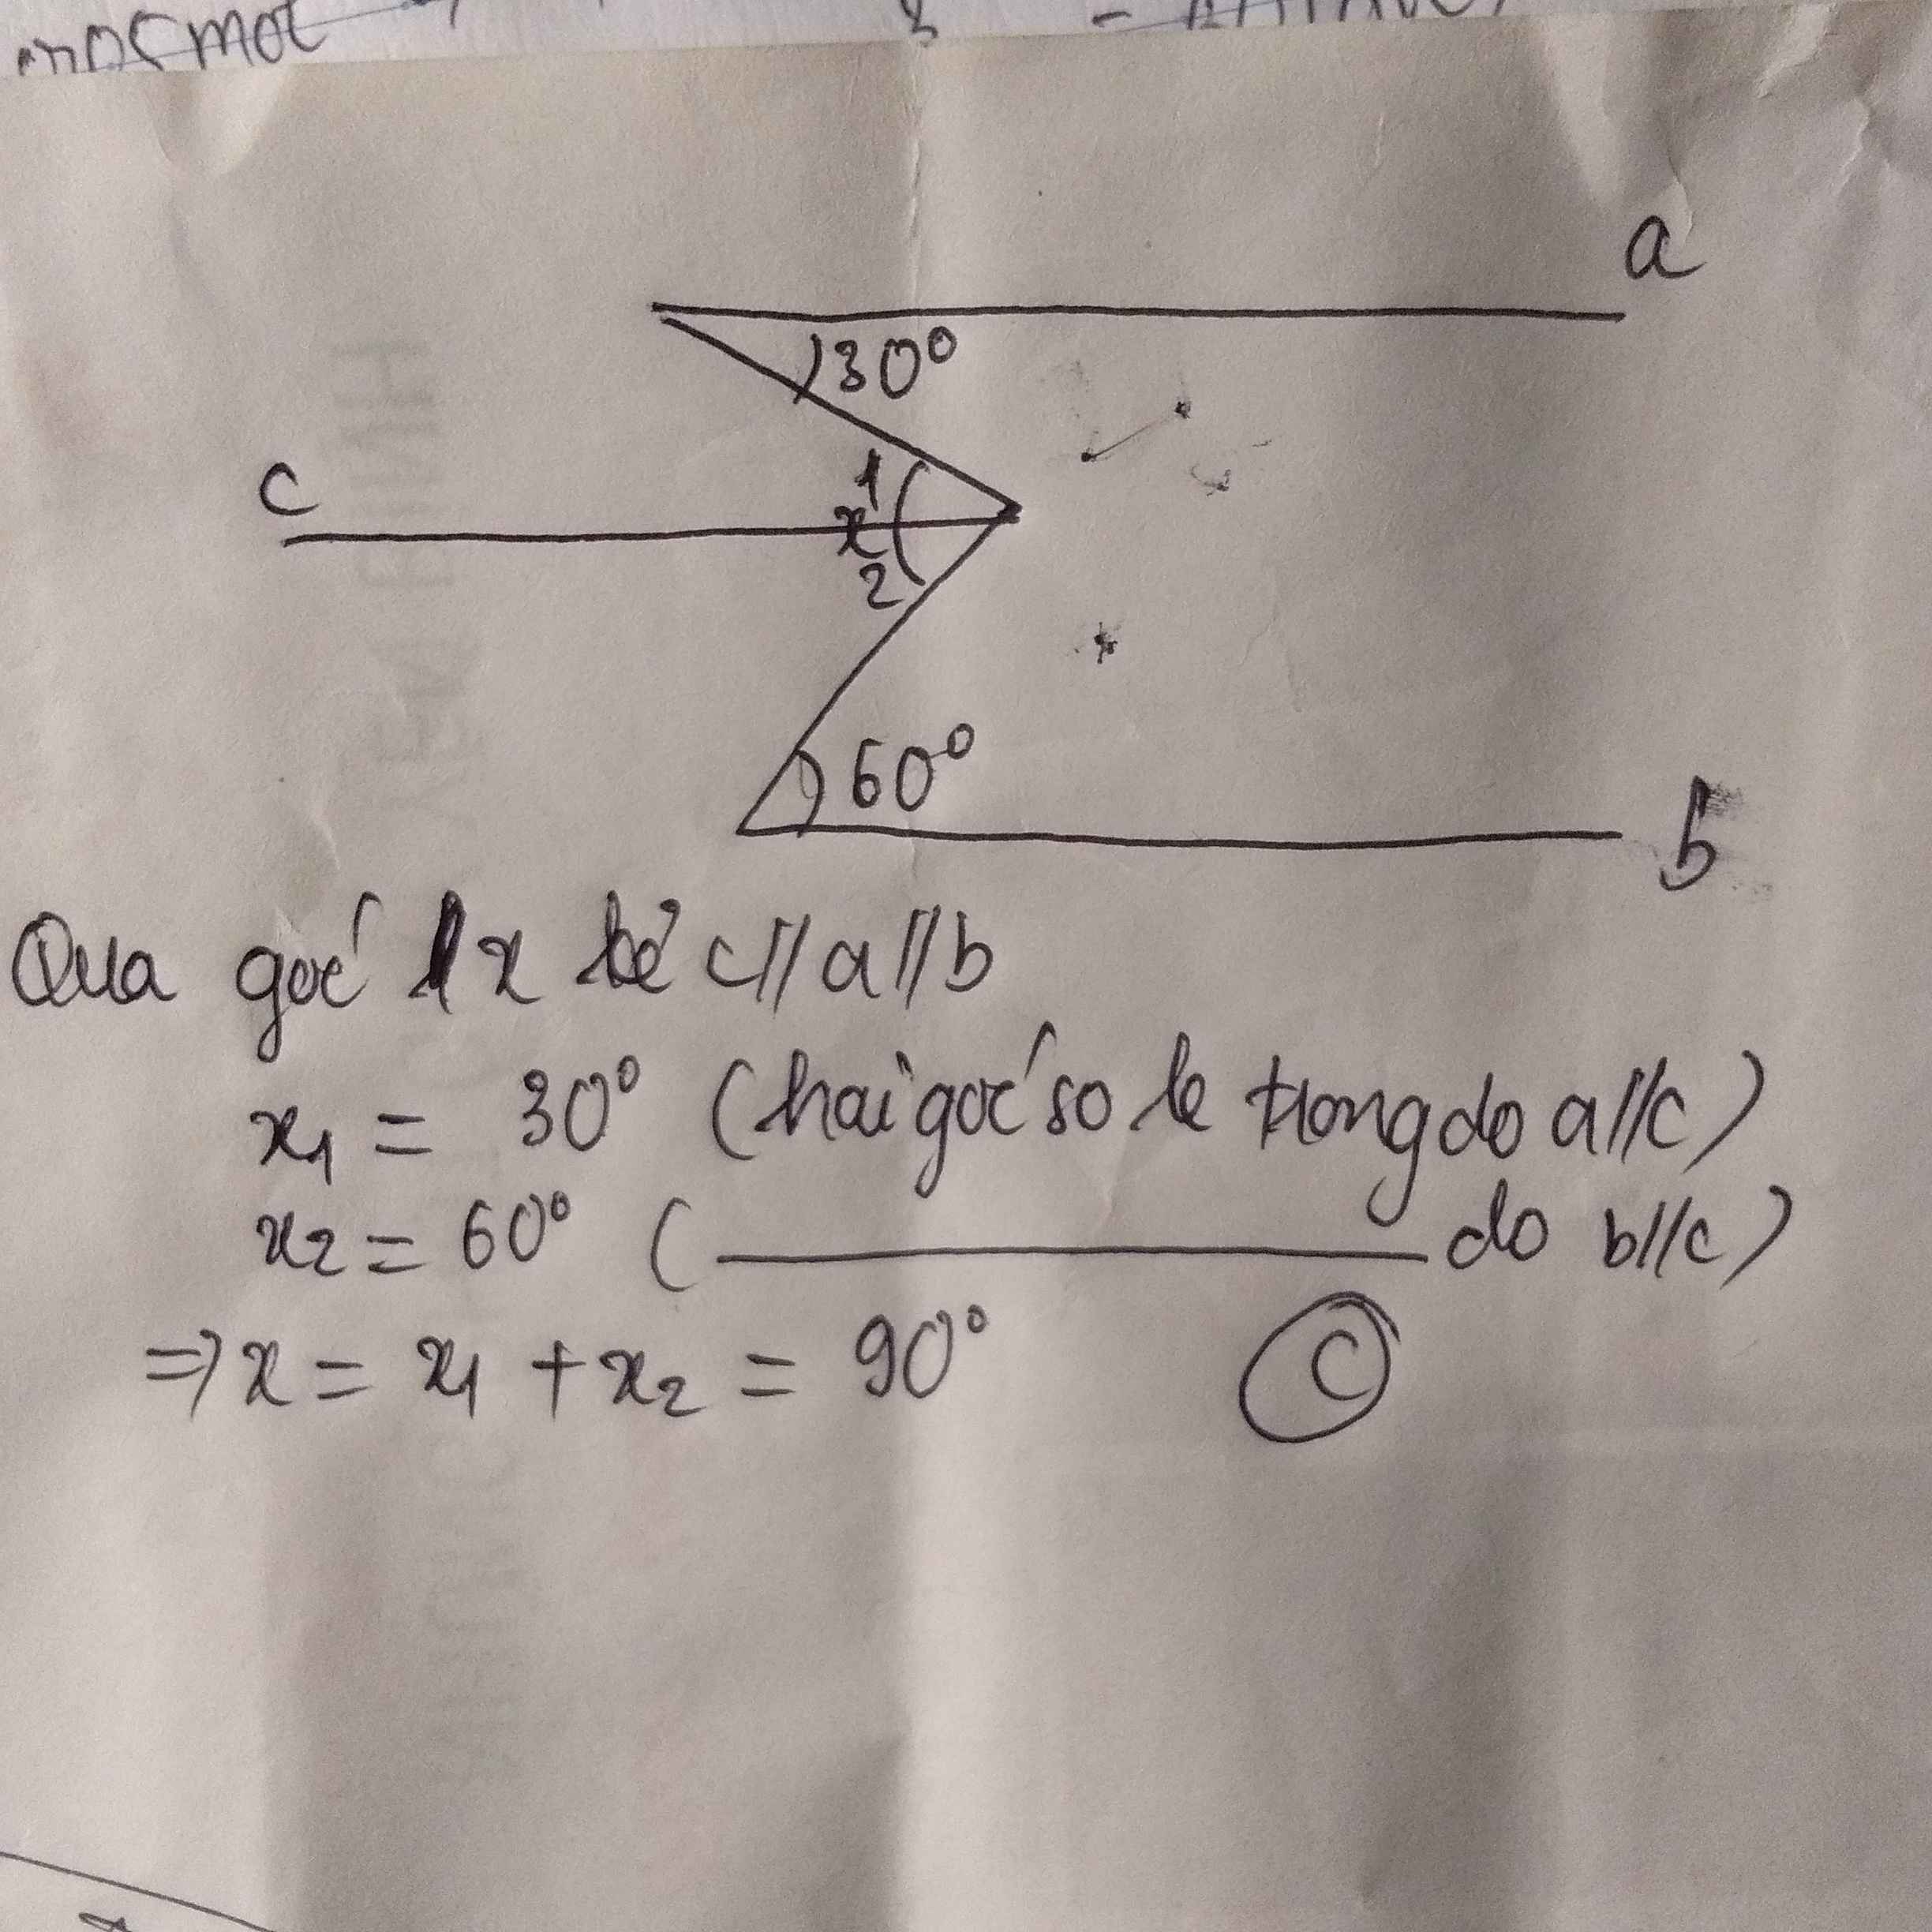 a
30°
c
1
x
2
60°
b
Qua góc x kẻ c//a//b
x1 = 30° (hai góc so le trong do a//c)
x2 = 60° ( ——— do b//c)
=> x = x1 + x2 = 90° C